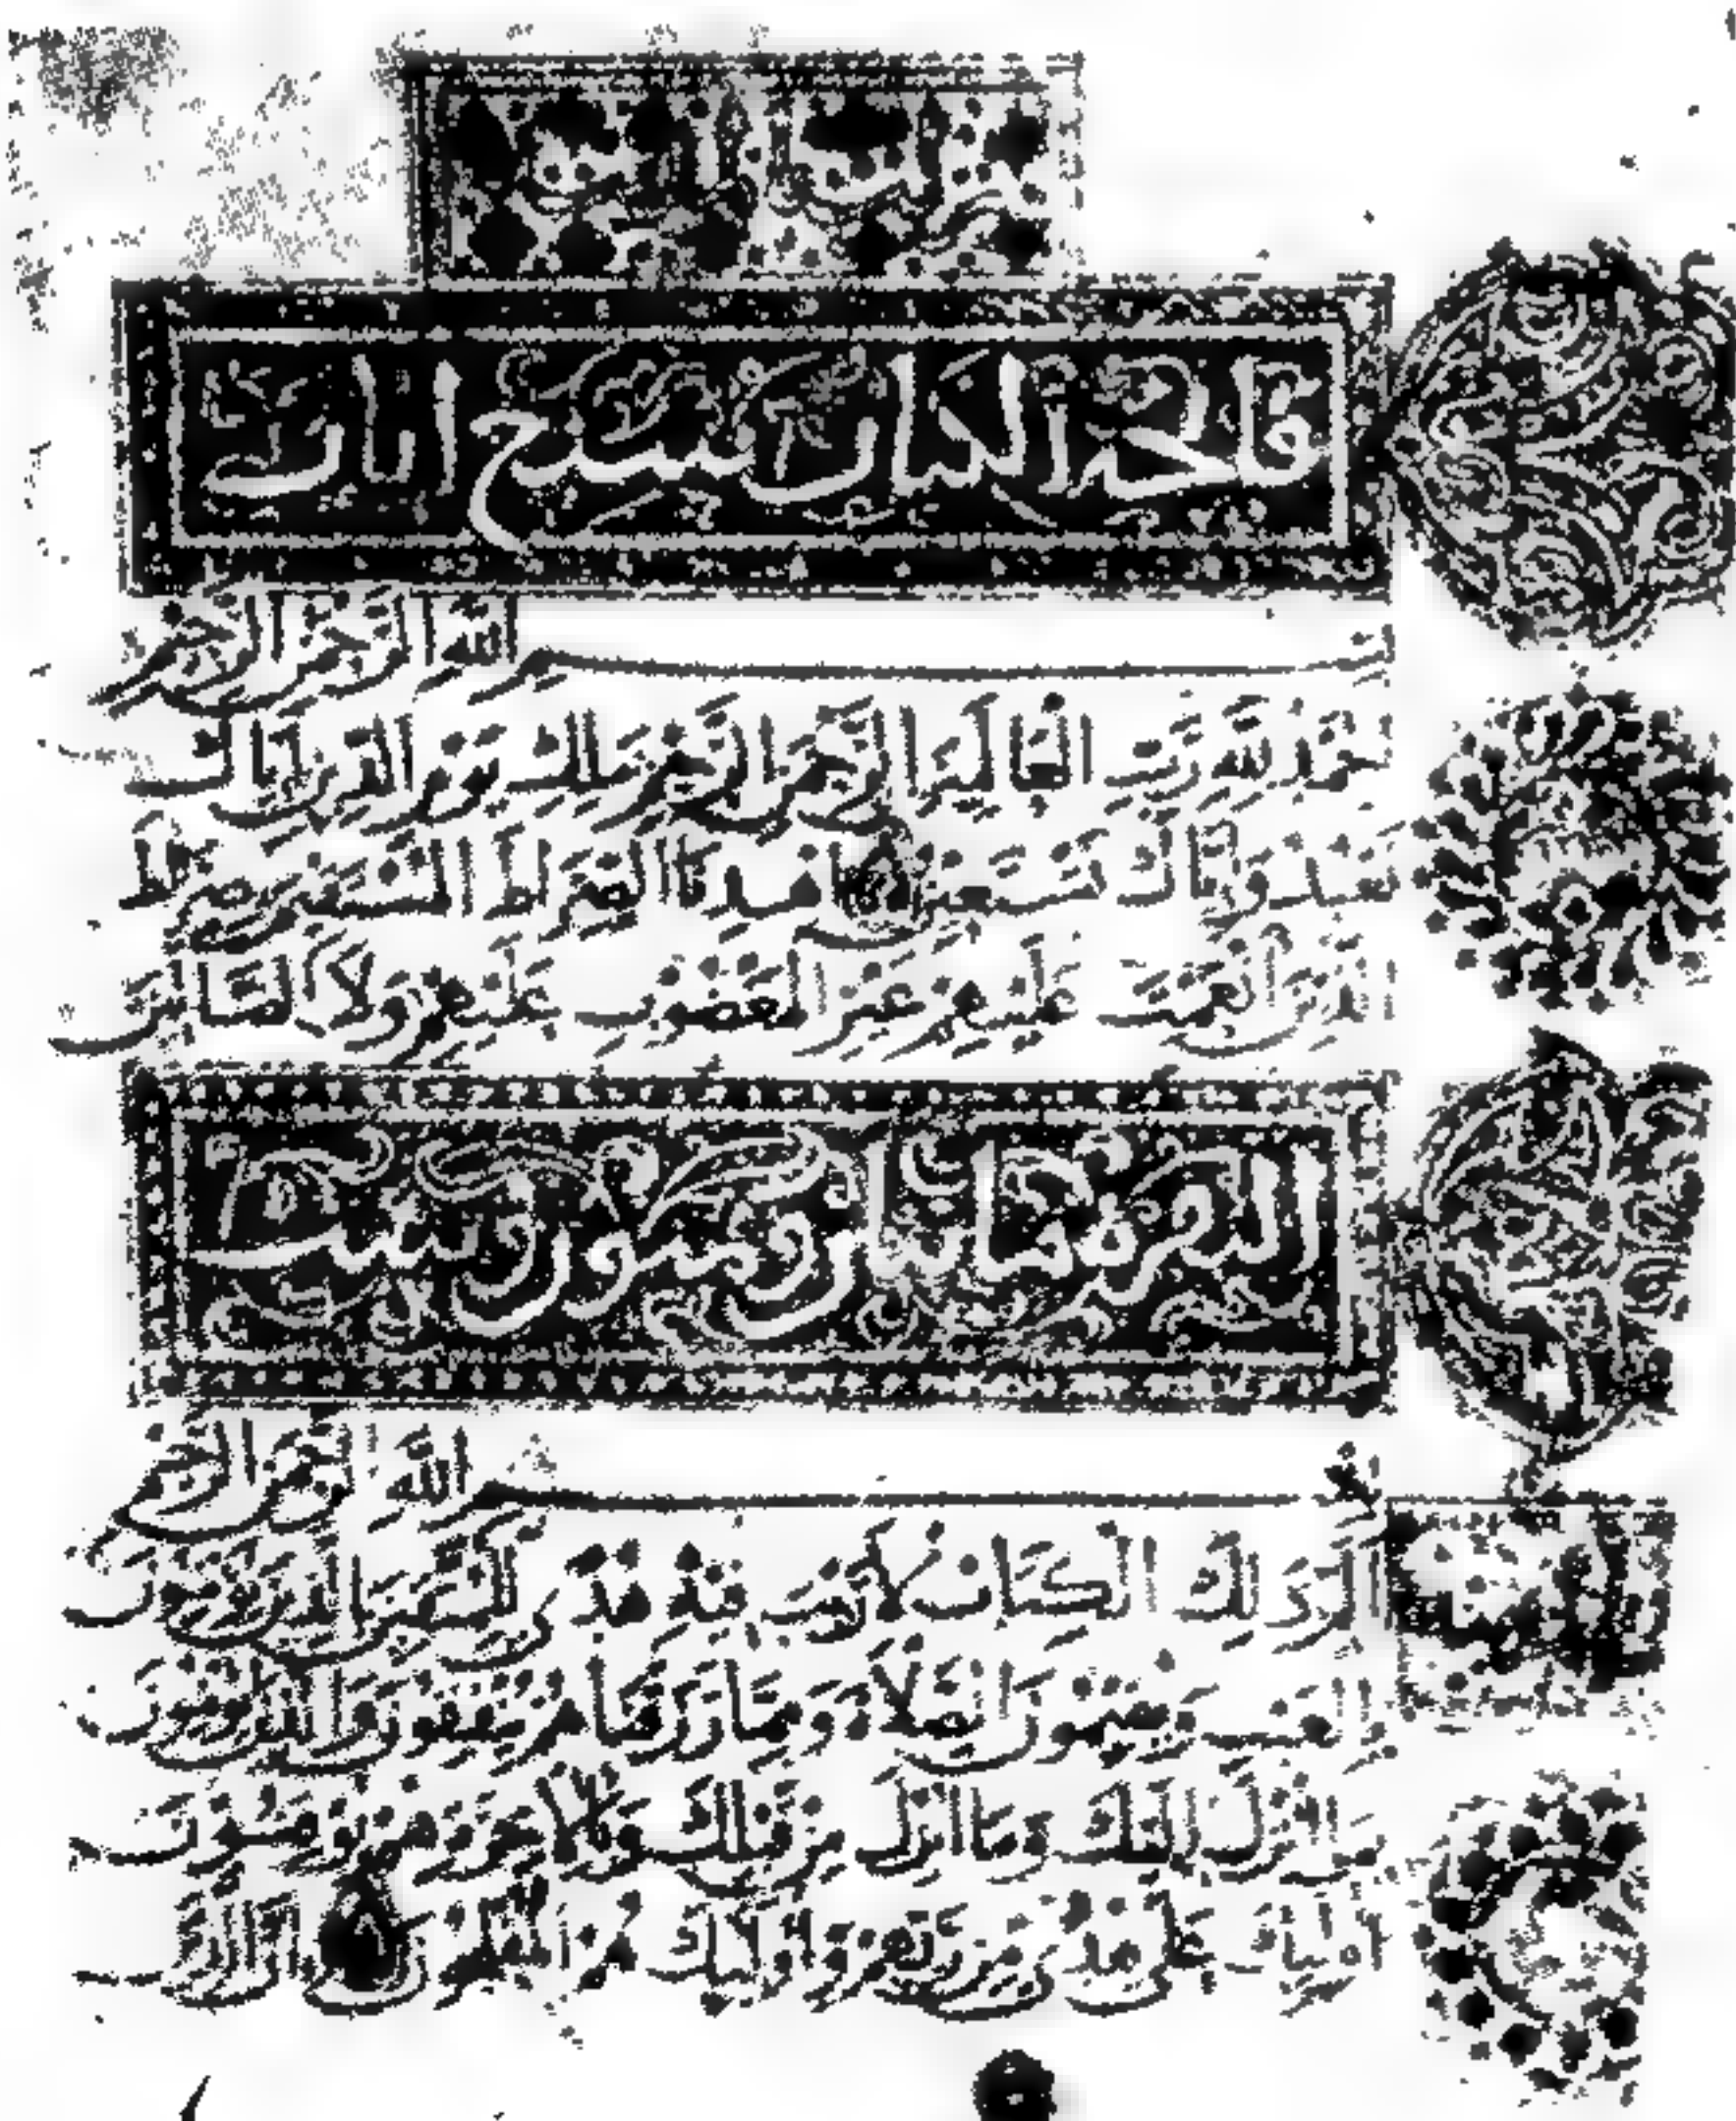 فاتحة الكتاب سبع ايات
بسم الله الرحمن الرحيم
لحمد لله رب العالمين الرحمن الرحيم ملك يوم الدين اياك
نعبد واياك نستعين اهدنا الصراط المستقيم صراط
الذين انعمت عليهم غير المغضوب عليهم ولا الضالين
البقرة مائتان وثمنون وست
بسم الله الرحمن الرحيم
الم ذلك الكتاب لا ريب فيه هدى للمتقين الذين يؤمنون
بالغيب ويقيمون الصلاة ومما رزقناهم ينفقون والذين يؤمنون
بما انزل اليك وما انزل من قبلك وبالاخرة هم يوقنون
اوليك على هدى من ربهم واوليك هم المفلحون ان الذين